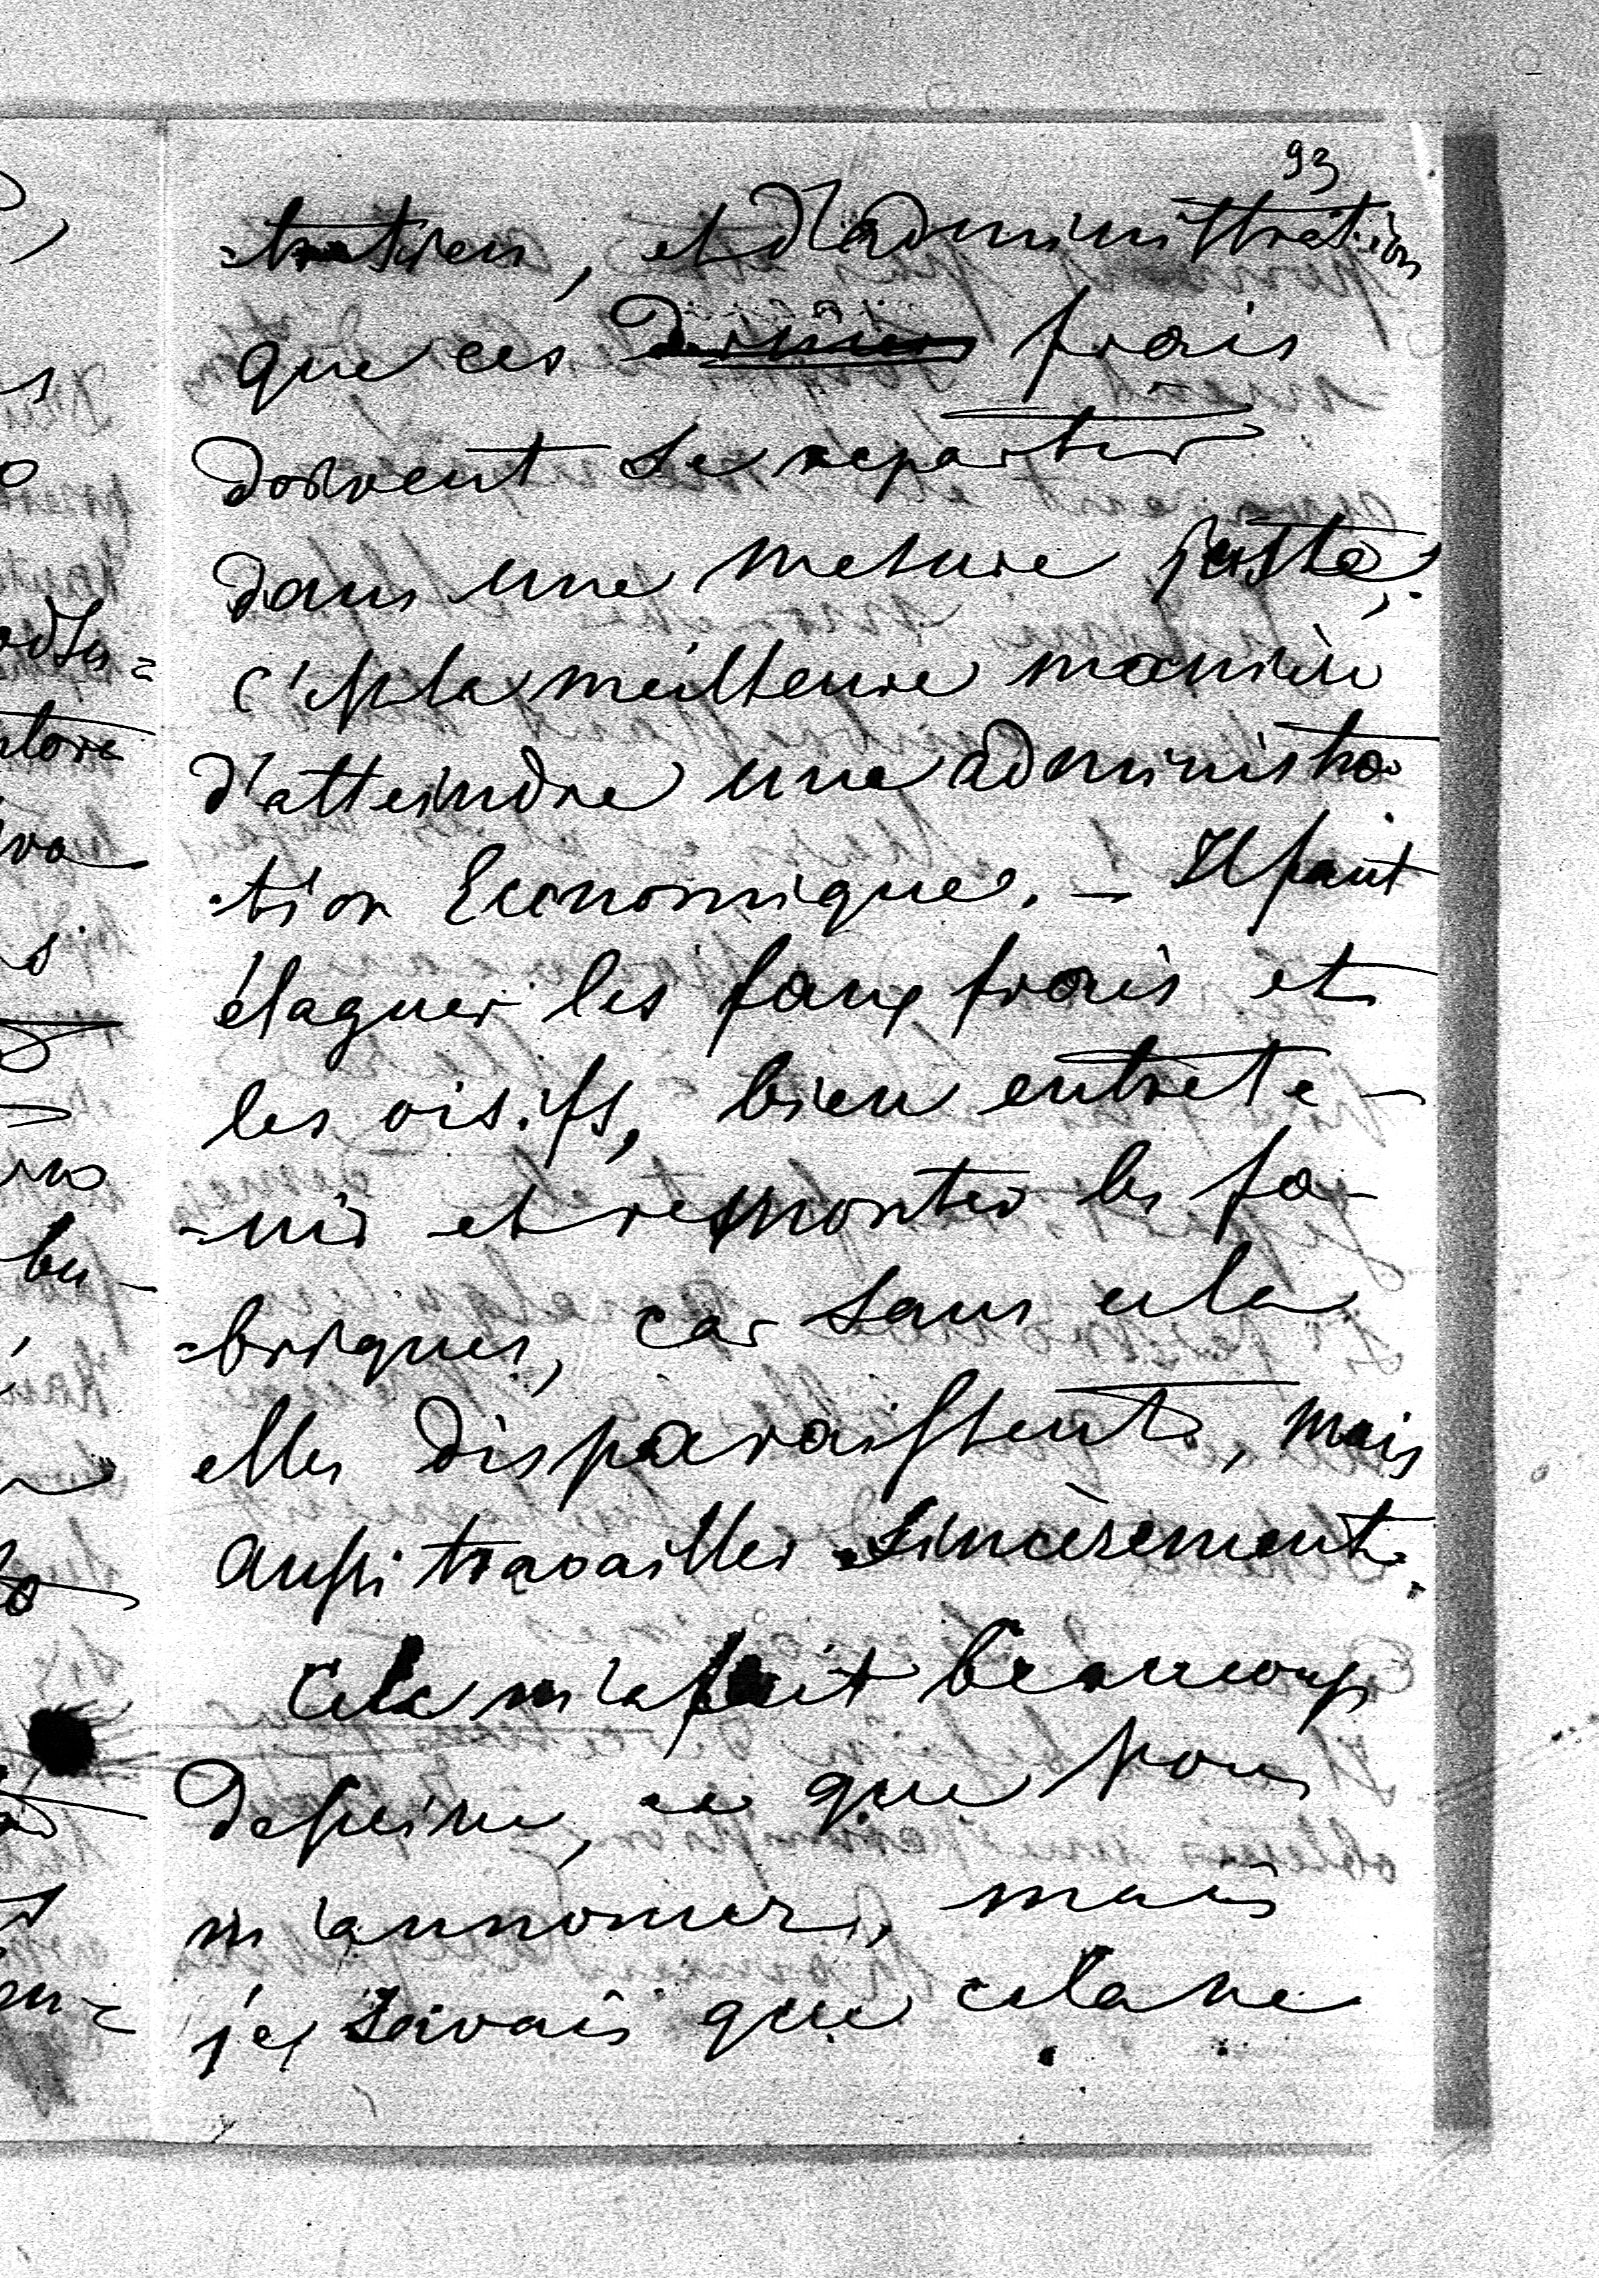 93
et d'administration
que ces derniers frais
doivent se repartir
dans une mesure juste;
c'est la meilleure manière
d'atteindre une administra
-tion Economique. — Il faut
élaguer les faux frais et
les oisifs, bien entrete-
-nir et remonter les fa-
-briques, car sans cela
elles disparaissent, mais
aussi travailler sincèrement.
Cela m'a fait beaucoup
de peine, ce que vous
m'annoncez, mais
je savais que cela ne